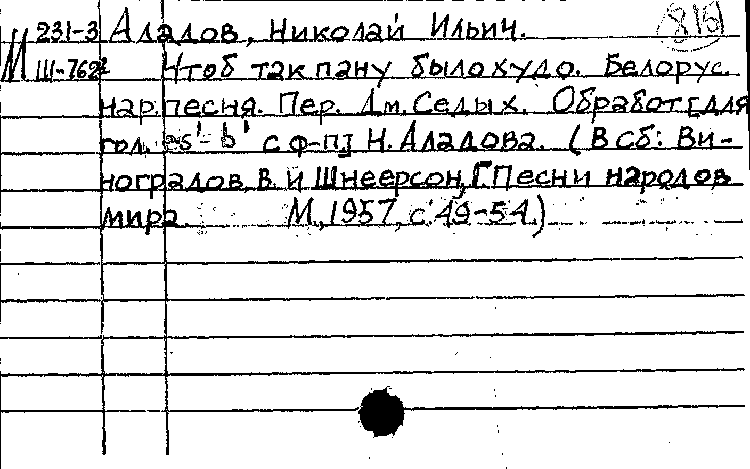 815
М 231-3 Аладов, Николай Ильич.
III-762 Чтоб так пану было худо. Белорус.
нар. песня. Пер. Дм. Седых. Обработ [для
гол. es'-b' с ф-п] Н. Аладова. (В сб: Ви-
ноградов, В. и Шнеерсон, Г. Песни народов
мира. М., 1957, с. 49-54.)